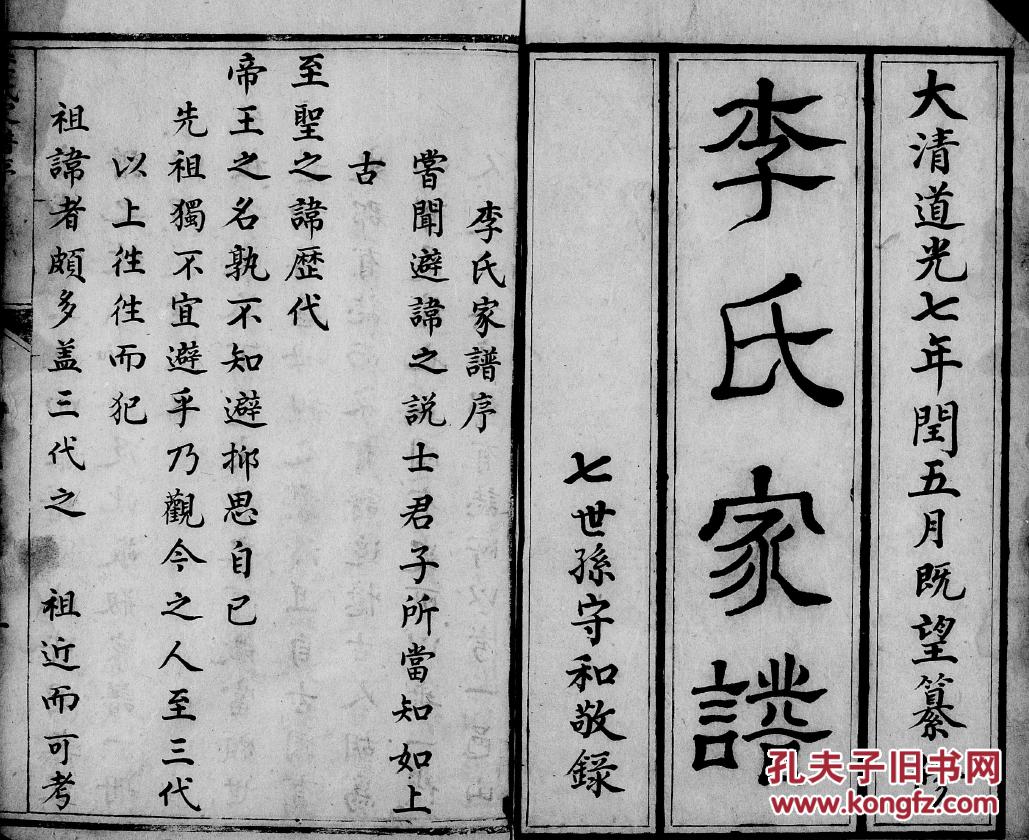 大清道光七年閏五月既望纂
李氏家譜
七世孫守和敬録
李氏家譜序
嘗聞避諱之説士君子所當知如上
古
至聖之諱歷代
帝王之名孰不知避抑思自己
先祖獨不宜避乎乃觀今之人至三代
以上徃徃而犯
祖諱者頗多盖三代之 祖近而可考
孔夫子旧书网
www.kongfz.com